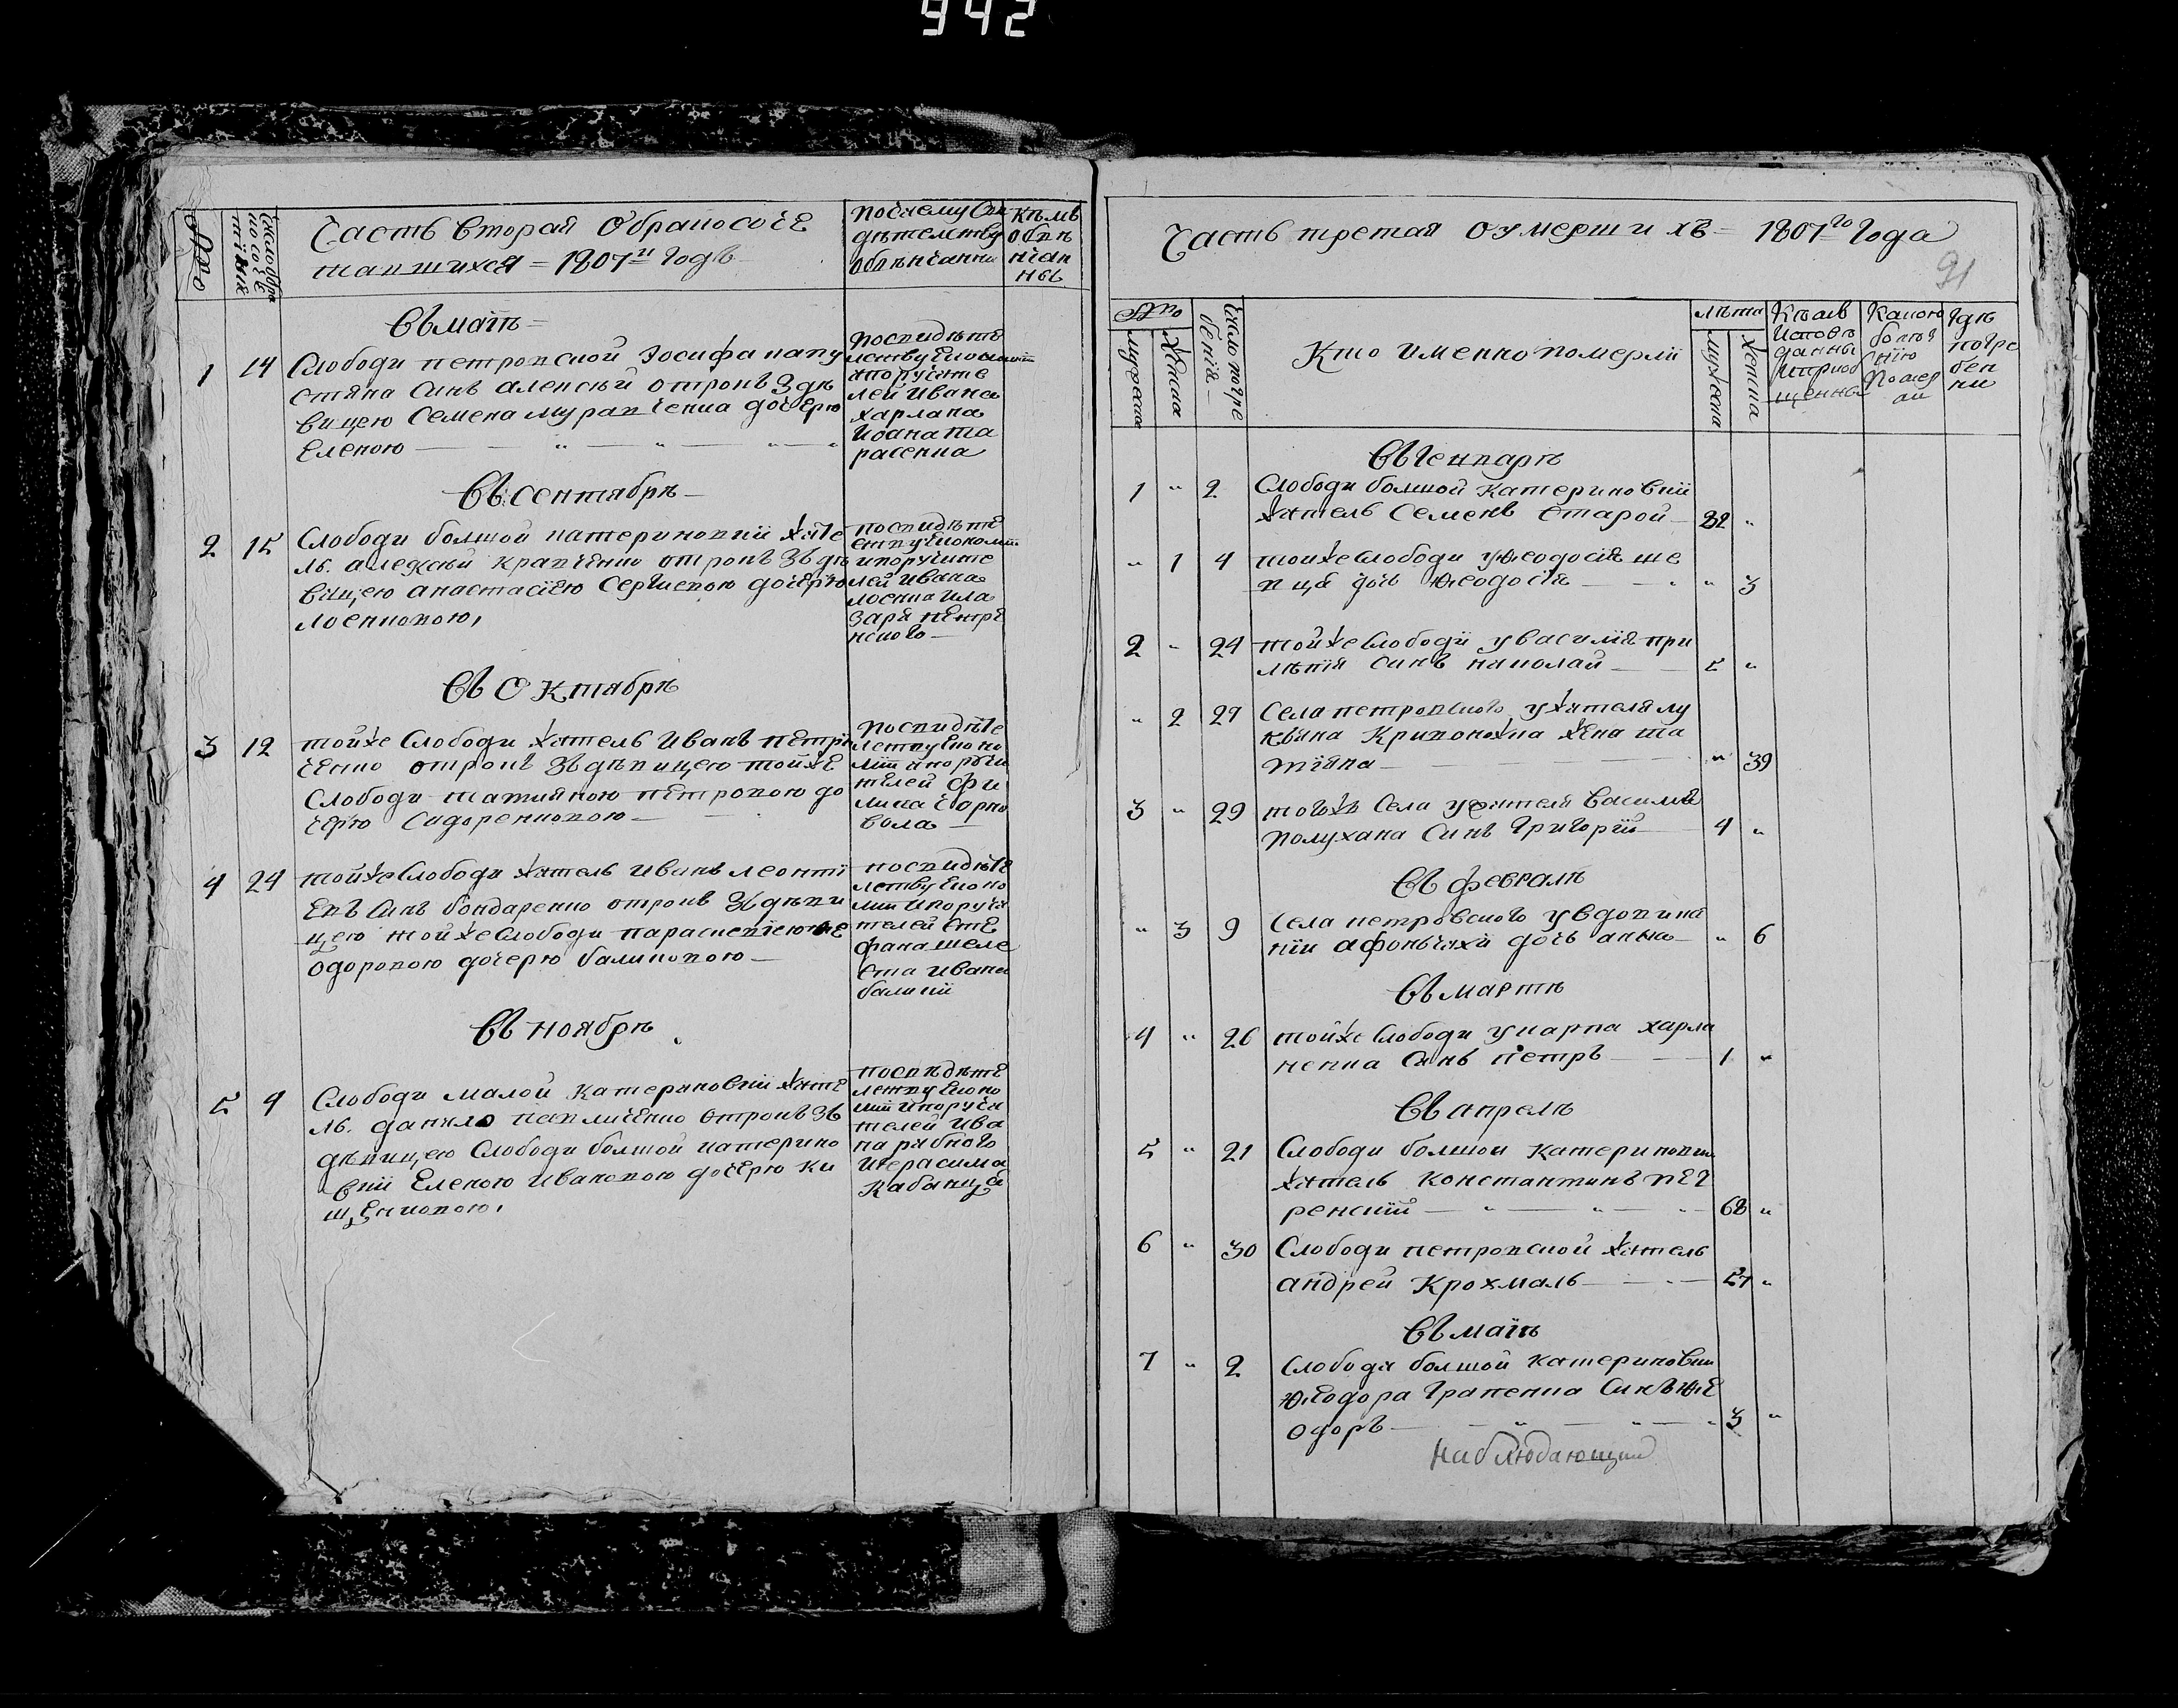 942
№
Число бра
косоче
тания
Часть вторая О бракосоче
тавшихся = 1807й годъ
По чиему сви
дѣтелству
обвѣнчанны
Кѣмъ
обвѣ
нчан
ны
Въ маiѣ =
1 14 Слободи петровской Iосифа капу
стяна синъ алексѣй отрокъ Здѣ
вицею Семена муравченка дочерю
Еленою
По свидѣте
апоручите
лей Ивана
харлана
Иоана та
расенка
Въ Сентябрѣ
2 15 Слободи болшой катериновкы жите
ль. алеѯѣй кравченко отрокъ Зъ дѣ
вицею анастасiею Сергиевою дочерю
лоенковою,
По свидѣте
ипоручите
лей Ивана
лоенка Ила
заря печре
нского
Въ Октябрѣ
3 12 тойже Слободи жител​ь Иванъ петри
ченко отрокъ Зъ дѣвицею тойже
Слободи татияною петровою до
черю Сидоренковою
По свидѣте
лству Еконо
мiи ипоручи
телей фи
липа Чорно
вола
4 24 тойже Слободи житель Иванъ леонтi
евъ Синъ бондаренко отрокъ Зъ дѣви
цею тойже Слободи параскевiею ѳе
одоровою дочерю баликовою
По свидѣте
лству Еконо
мiи ипоруча
телей Сте
фана шеле
ста Ивана
балики
Въ ноябрѣ
5 9 Слободи малой Катериновкы жите
ль. данило павличенко отрокъ Зъ
дѣвицею Слободи болшой катерино
вкы Еленою Ивановою дочерю ки
щенковою,
По свѣдѣте
лству Еконо
мiи ипоруча
телей Ива
на рябкого
Игерасима
Кабанца
Часть третая О умершихъ = 1807го года
91
№
мужеска
женска
Число погре
бенiя
Кто именно померлы
лѣта
мужеска
женска
Кѣмъ
исповѣ
данны
иприоб
щенны
Какою
болез
нiю
Помер
ли
Гдѣ
погре
бен
ни
Въ Генварѣ
1 " 2 Слободи болшой Катериновкы
житель Семенъ Старой 82 "
" 1 4 тойже Слободи уѳеодосiя ше
вца дочь ѳеодосiя " 3
2 " 24 тойже Слободи увасилiя при
лѣпiя синъ николай 5 "
" 2 27 Села петровского ужителя лу
кяна Кривоножка жена та
тiяна " 39
3 " 29 тогожъ Села ужителя Василiя
Полухана Синъ Григорiй 4 "
Въ февралѣ
" 3 9 Села петровского увдови на
нiи афонычихи дочь анна " 6
Въ мартѣ
4 " 26 тойже Слободи укарпа харла
ненка Синъ петръ 1 "
Въ апрелѣ
5 " 21 Слободи болшой Катериновки
житель Константинъ печ
ренскiй 68 "
6 " 30 Слободи петровской житель
андрей Крохмаль 57 "
Въ маiѣ
7 " 2 Слободи болшой Катериновки
ѳеодора Гравенка Синъ ѳе
одоръ 3 "
Наблюдающий